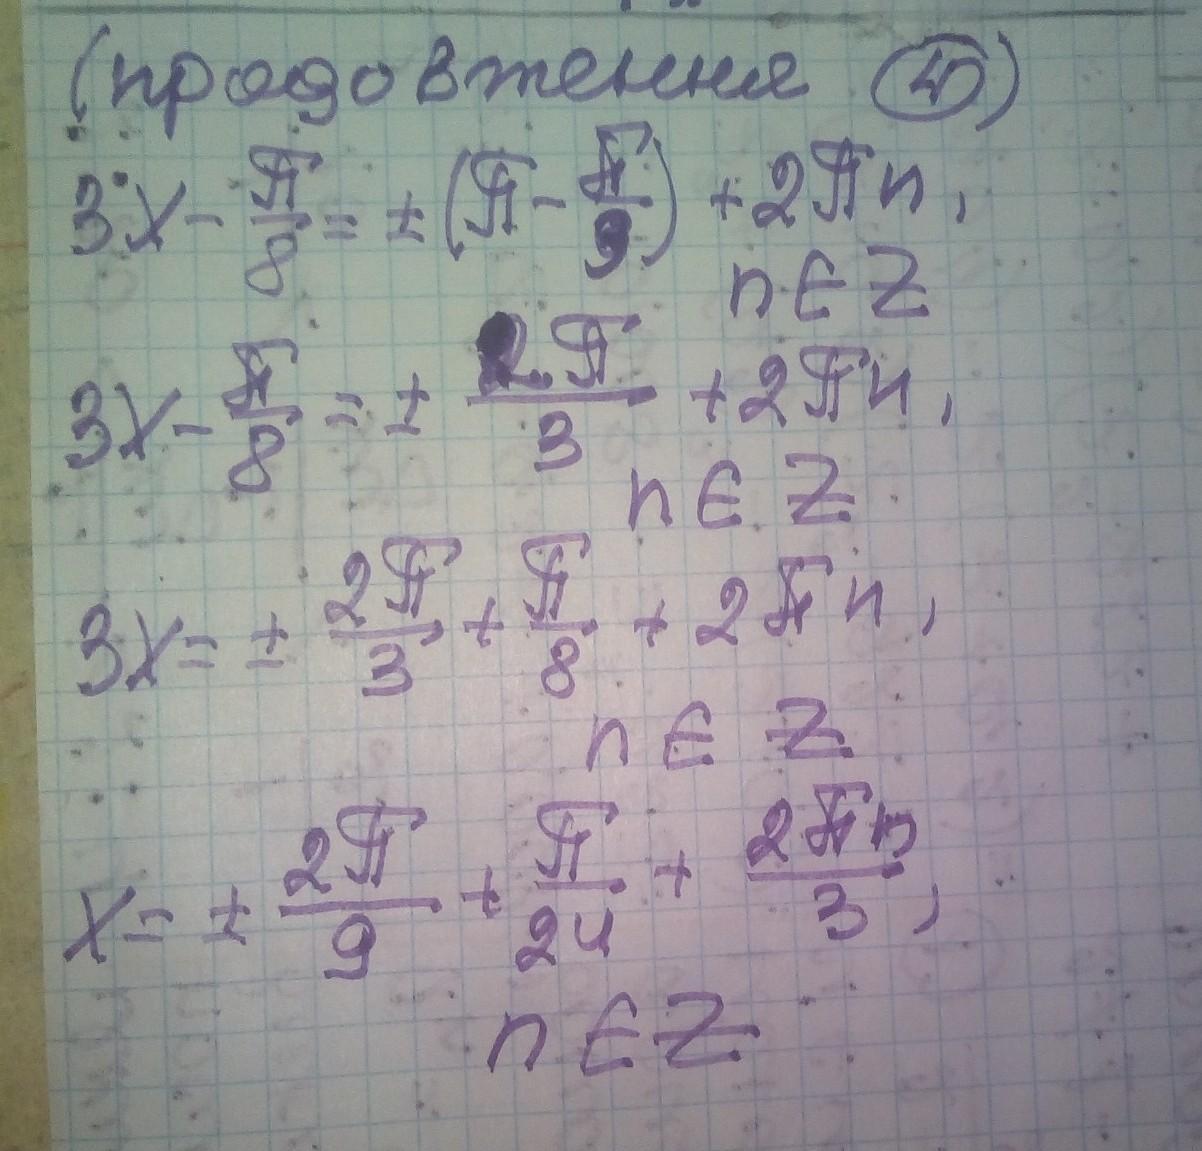 (продовження ④)
3x - π/8 = ± (π - π/3) + 2πn,
n ∈ Z
3x - π/8 = ± 2π/3 + 2πn,
n ∈ Z
3x = ± 2π/3 + π/8 + 2πn,
n ∈ Z
x = ± 2π/9 + π/24 + 2πn/3,
n ∈ Z